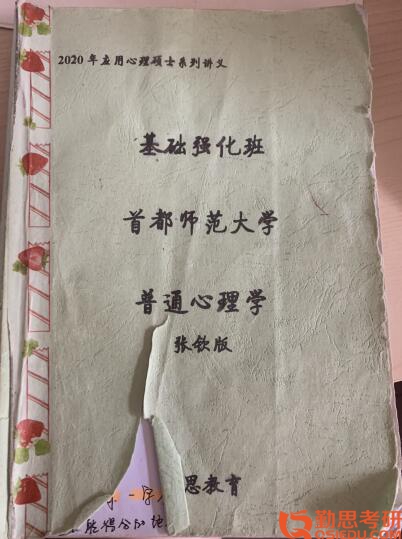 2020年应用心理硕士系列讲义
基础强化班
首都师范大学
普通心理学
张钦版
思教育
勤思考研